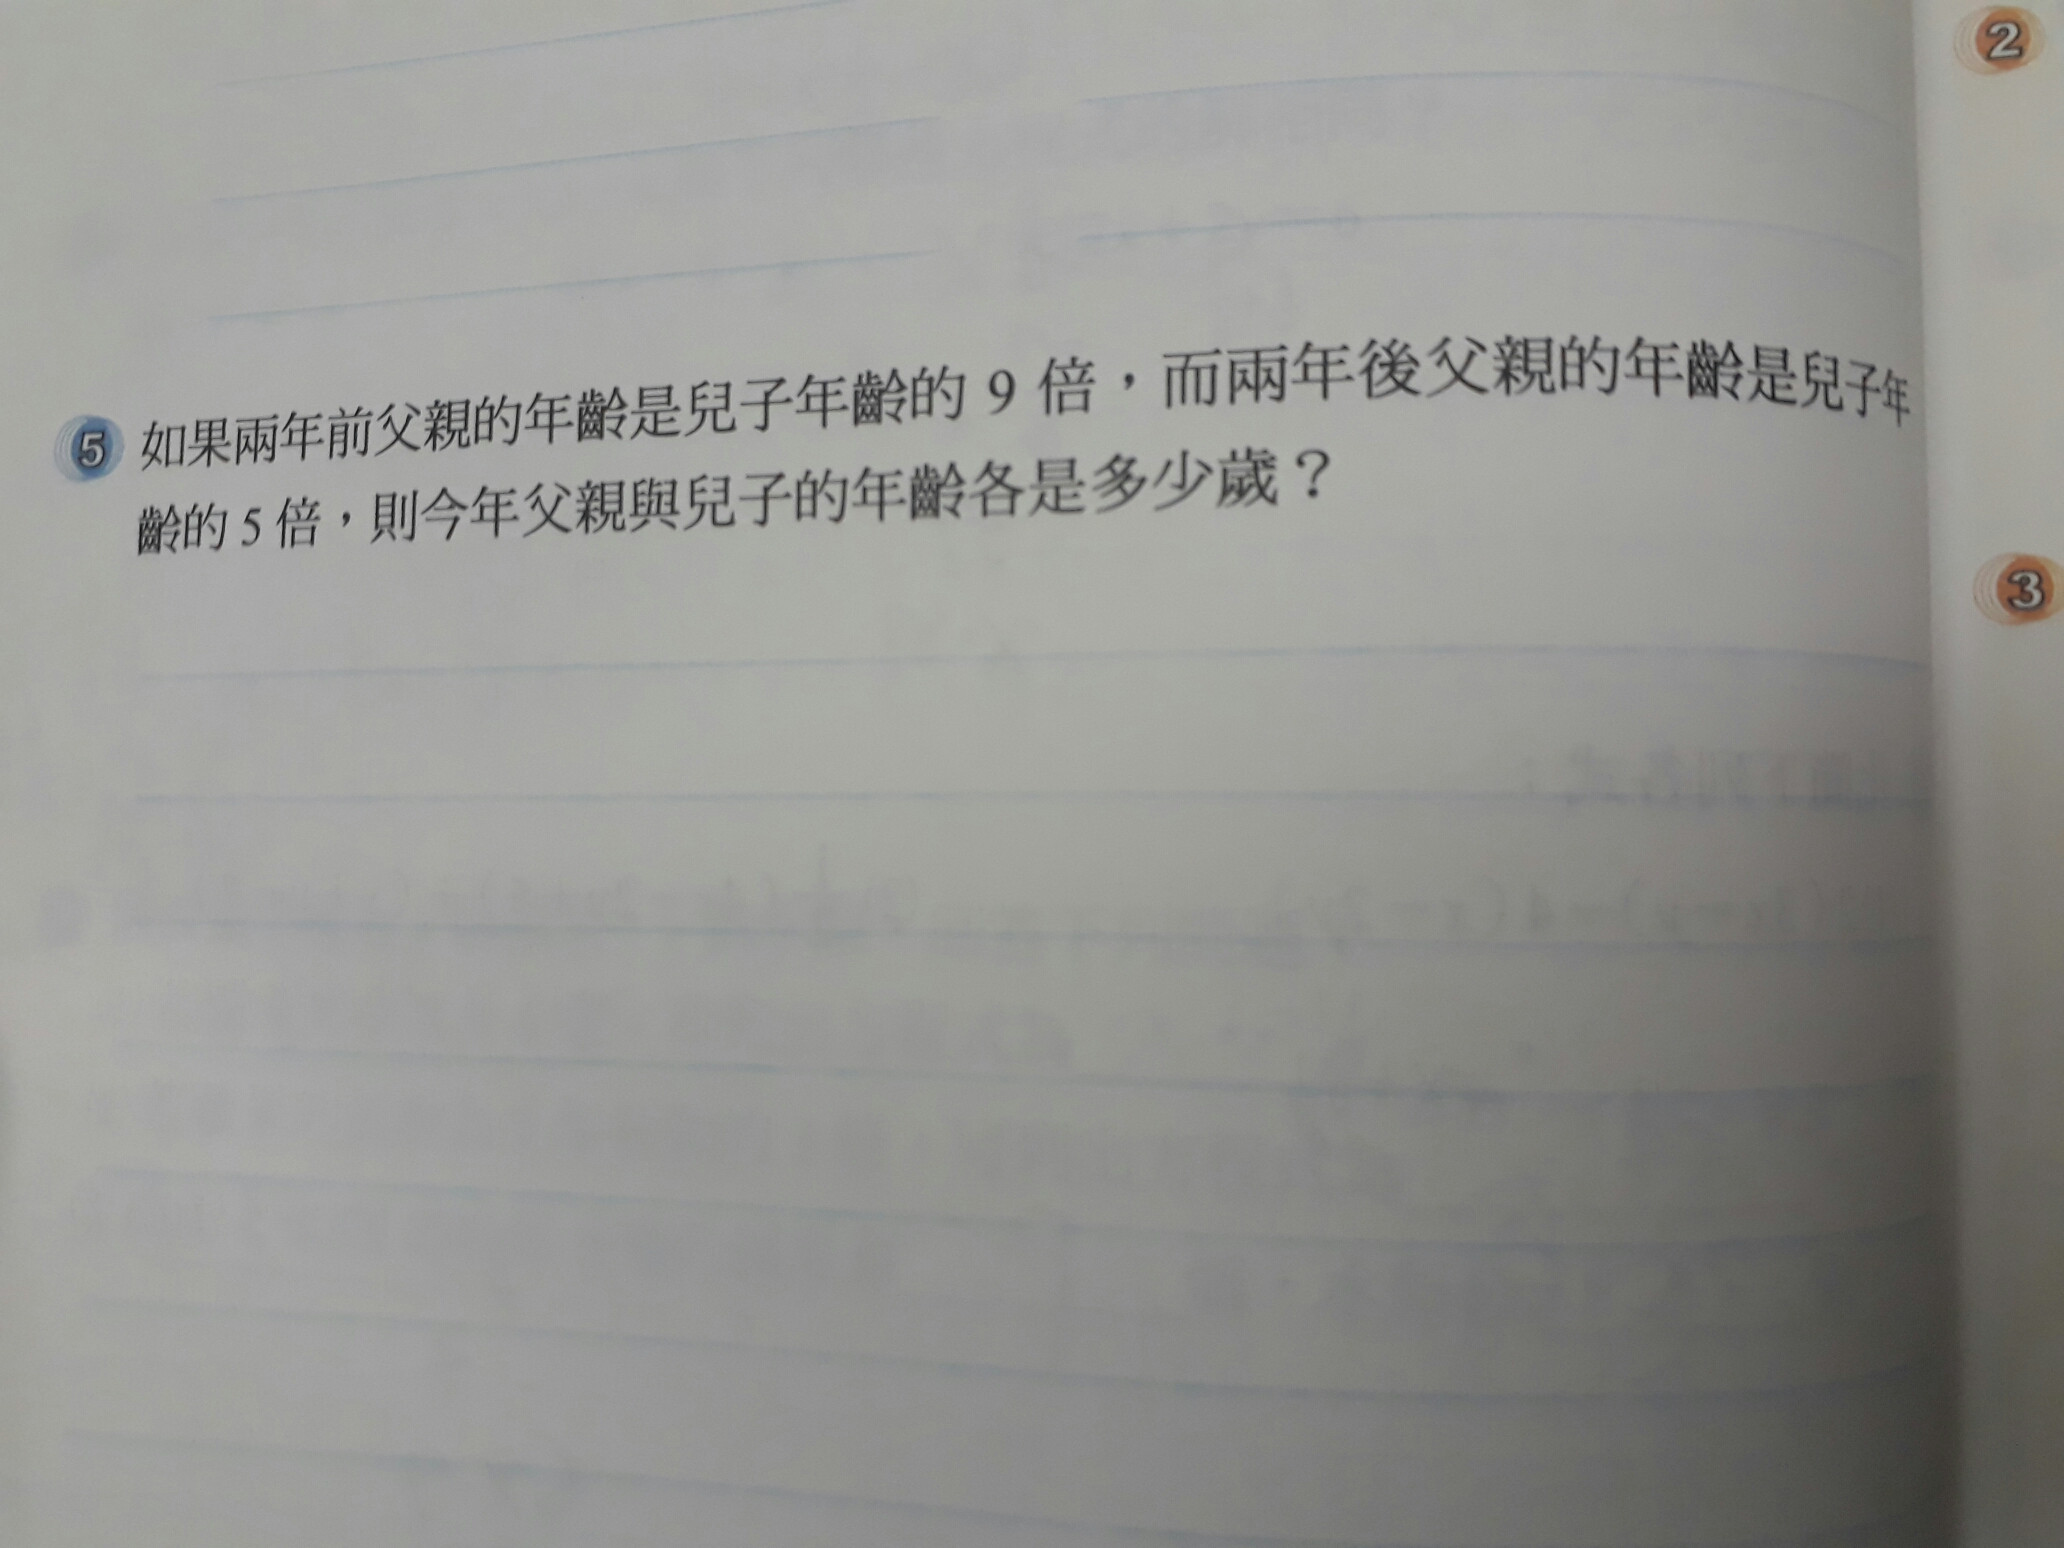 2
5 如果兩年前父親的年齡是兒子年齡的 9 倍，而兩年後父親的年齡是兒子年
齡的 5 倍，則今年父親與兒子的年齡各是多少歲？
3